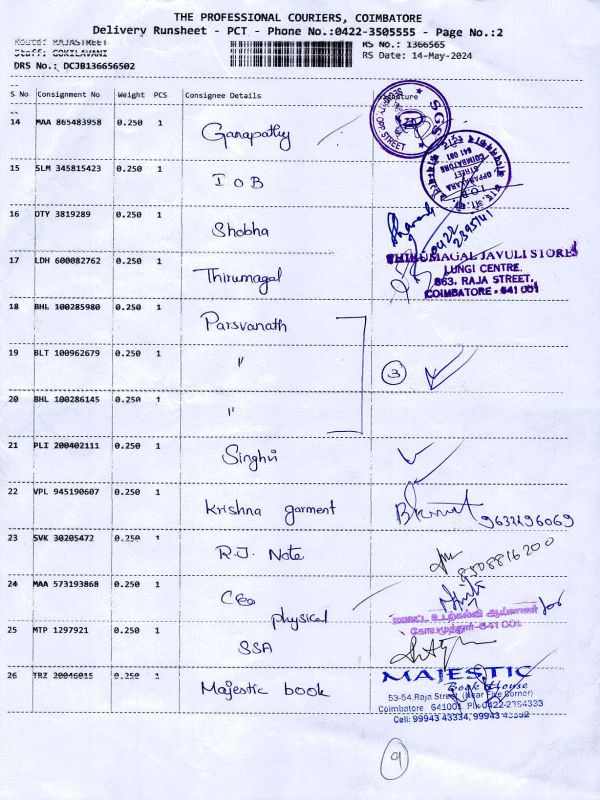 THE PROFESSIONAL COURIERS, COIMBATORE
Delivery Runsheet - PCT - Phone No.:0422-3505555 - Page No.:2
Route: RAJASTREET
Staff: GOKILAVANI
DRS No.: DCJB136656502
RS No.: 1366565
RS Date: 14-May-2024
S No Consignment No Weight PCS Consignee Details Signature
14 MAA 865483958 0.250 1 Ganapathy
SGS
STREET
15 SLM 345815423 0.250 1 IOB
OPPANKARA
STREET
COIMBATORE
641 001
16 OTY 3819289 0.250 1 Shobha
0422
2395741
17 LDH 600082762 0.250 1 Thirumagal
THIRUMAGAL JAVULI STORES
LUNGI CENTRE.
863, RAJA STREET,
COIMBATORE - 641 001
18 BHL 100285980 0.250 1 Parsvanath
19 BLT 100962679 0.250 1 "
3
20 BHL 100286145 0.250 1 "
21 PLI 200402111 0.250 1 Singhvi
22 VPL 945190607 0.250 1 Krishna garment
9632196069
23 SVK 30205472 0.250 1 R.J. Note
8508816200
24 MAA 573193868 0.250 1 CEO
physical
கோயமுத்தூர்-641 001
25 MTP 1297921 0.250 1 SSA
26 TRZ 20046015 0.250 1 Majestic book
MAJESTIC
Book House
53-54, Raja Street, (Near Five Corner)
Coimbatore 641001. Ph: 0422-2384333
Cell: 99943 43334, 99943 43352
9